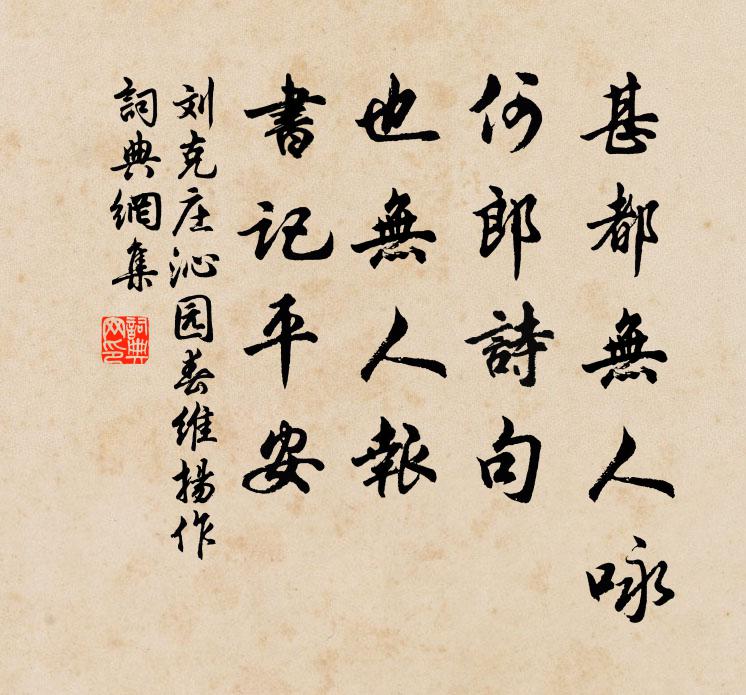 甚都無人詠
何郎詩句
也無人報
書記平安
刘克庄沁园春維揚作
詞典網集
詞典網印